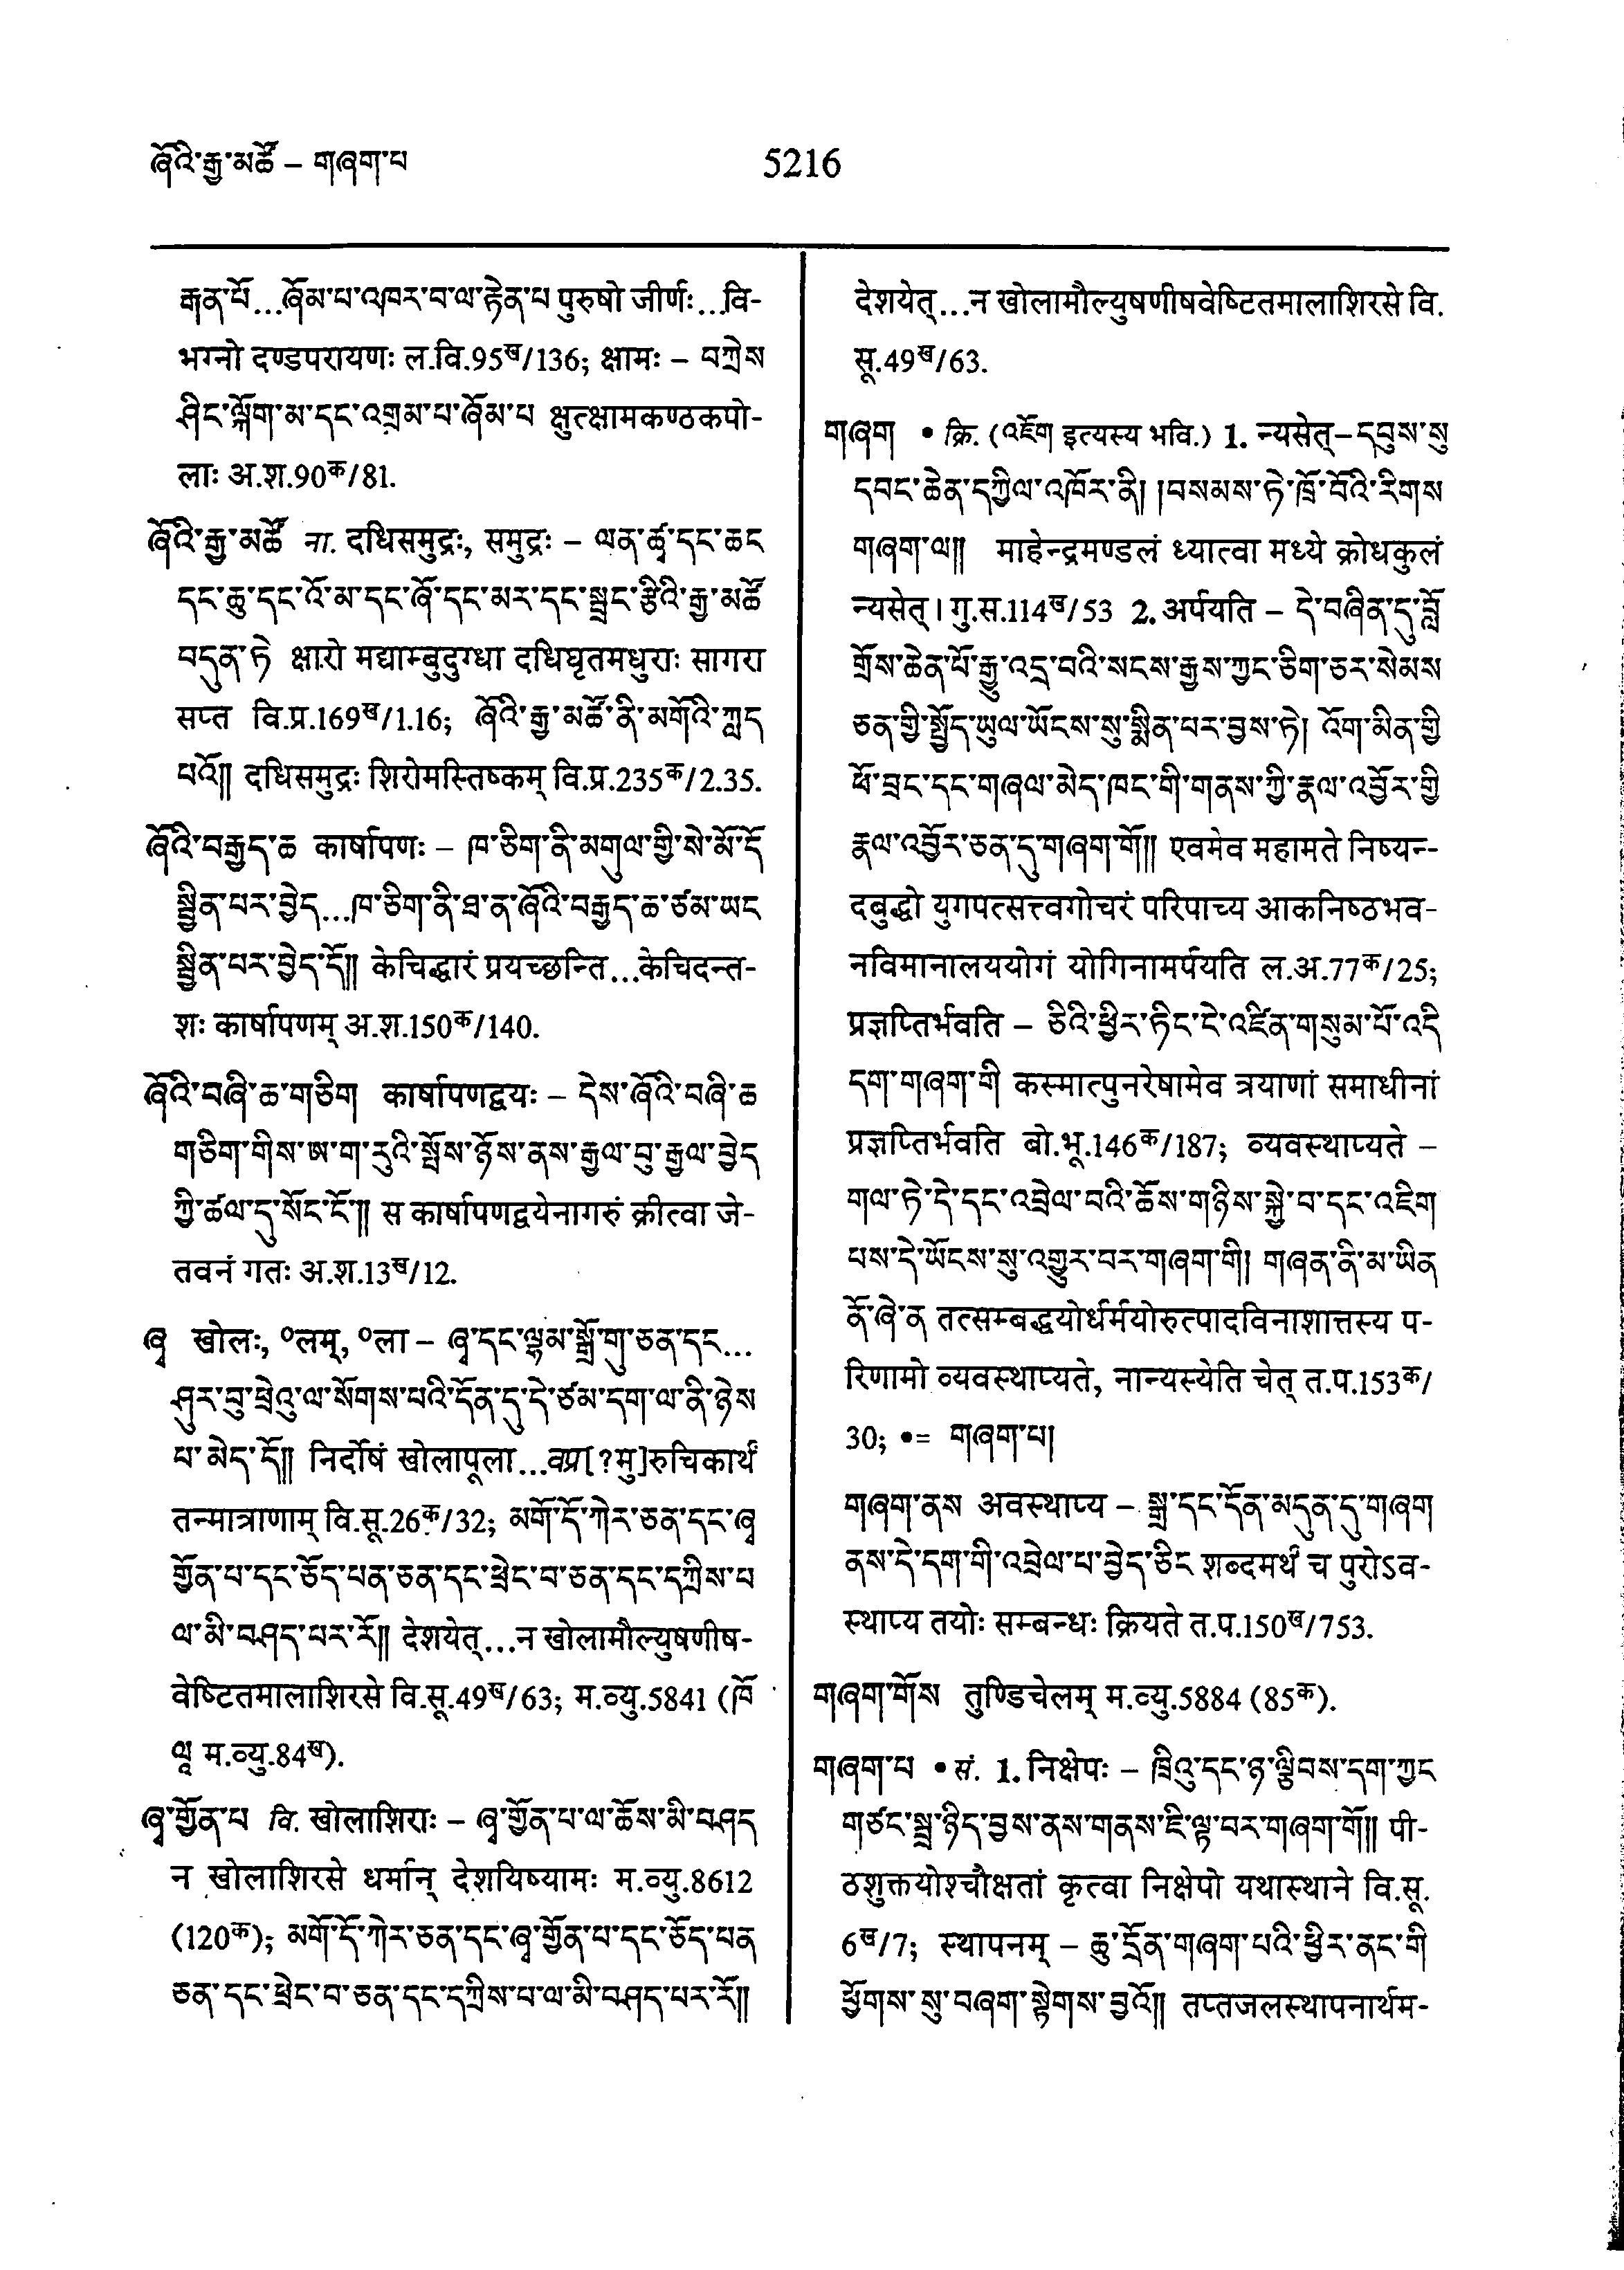 ཞོའི་རྒྱ་མཚོ – གཞག་པ
5216
རྒན་པོ...ཞོམ་པ་འཁར་བ་ལ་རྟེན་པ पुरुषो जीर्णः...वि-
भग्नो दण्डपरायणः ल.वि.95ख/136; क्षामः – བཀྲེས
ཤིང་ལྐོག་མ་དང་འགྲམ་པ་ཞོམ་པ क्षुत्क्षामकण्ठकपो-
लाः अ.श.90क/81.
ཞོའི་རྒྱ་མཚོ ना. दधिसमुद्रः, समुद्रः – ལན་ཚྭ་དང་ཆང
དང་ཆུ་དང་འོ་མ་དང་ཞོ་དང་མར་དང་སྦྲང་རྩིའི་རྒྱ་མཚོ
བདུན་ཏེ क्षारो मद्याम्बुदुग्धा दधिघृतमधुराः सागरा
सप्त वि.प्र.169ख/1.16; ཞོའི་རྒྱ་མཚོ་ནི་མགོའི་ཀླད
པའོ།། दधिसमुद्रः शिरोमस्तिष्कम् वि.प्र.235क/2.35.
ཞོའི་བརྒྱད་ཆ कार्षापणः – ཁ་ཅིག་ནི་མགུལ་གྱི་སེ་མོ་དོ
སྦྱིན་པར་བྱེད...ཁ་ཅིག་ནི་ཐ་ན་ཞོའི་བརྒྱད་ཆ་ཙམ་ཡང
སྦྱིན་པར་བྱེད་དོ།། केचिद्धारं प्रयच्छन्ति...केचिदन्त-
शः कार्षापणम् अ.श.150क/140.
ཞོའི་བཞི་ཆ་གཅིག कार्षापणद्वयः – དེས་ཞོའི་བཞི་ཆ
གཅིག་གིས་ཨ་ག་རུའི་སྤོས་ཉོས་ནས་རྒྱལ་བུ་རྒྱལ་བྱེད
ཀྱི་ཚལ་དུ་སོང་ངོ་།། स कार्षापणद्वयेनागरुं क्रीत्वा जे-
तवनं गतः अ.श.13ख/12.
ཞྭ खोलः, ॰लम्, ॰ला – ཞྭ་དང་ལྷམ་སྒྲོ་གུ་ཅན་དང...
ཤུར་བུ་ཕྲེའུ་ལ་སོགས་པའི་དོན་དུ་དེ་ཙམ་དག་ལ་ནི་ཉེས
པ་མེད་དོ།། निर्दोषं खोलापूला...वप्र[?मु]रुचिकार्थं
तन्मात्राणाम् वि.सू.26क/32; མགོ་དོ་ཀེར་ཅན་དང་ཞྭ
གྱོན་པ་དང་ཅོད་པན་ཅན་དང་ཕྲེང་བ་ཅན་དང་དཀྲིས་པ
ལ་མི་བཤད་པར་རོ།། देशयेत्...न खोलामौल्युषणीष-
वेष्टितमालाशिरसे वि.सू.49ख/63; म.व्यु.5841 (ཁོ
ལཱ म.व्यु.84ख).
ཞྭ་གྱོན་པ वि. खोलाशिराः – ཞྭ་གྱོན་པ་ལ་ཆོས་མི་བཤད
न खोलाशिरसे धर्मान् देशयिष्यामः म.व्यु.8612
(120क); མགོ་དོ་ཀེར་ཅན་དང་ཞྭ་གྱོན་པ་དང་ཅོད་པན
ཅན་དང་ཕྲེང་བ་ཅན་དང་དཀྲིས་པ་ལ་མི་བཤད་པར་རོ།།
देशयेत्...न खोलामौल्युषणीषवेष्टितमालाशिरसे वि.
सू.49ख/63.
གཞག • क्रि. (འཇོག इत्यस्य भवि.) 1. न्यसेत्– དབུས་སུ
དབང་ཆེན་དཀྱིལ་འཁོར་ནི། །བསམས་ཏེ་ཁྲོ་བོའི་རིགས
གཞག་ལ།། माहेन्द्रमण्डलं ध्यात्वा मध्ये क्रोधकुलं
न्यसेत्। गु.स.114ख/53 2. अर्पयति – དེ་བཞིན་དུ་བློ
གྲོས་ཆེན་པོ་རྒྱུ་འདྲ་བའི་སངས་རྒྱས་ཀྱང་ཅིག་ཅར་སེམས
ཅན་གྱི་སྤྱོད་ཡུལ་ཡོངས་སུ་སྨིན་པར་བྱས་ཏེ། འོག་མིན་གྱི
ཕོ་བྲང་དང་གཞལ་མེད་ཁང་གི་གནས་ཀྱི་རྣལ་འབྱོར་གྱི
རྣལ་འབྱོར་ཅན་དུ་གཞག་གོ།། एवमेव महामते निष्यन्-
दबुद्धो युगपत्सत्त्वगोचरं परिपाच्य आकनिष्ठभव-
नविमानालययोगं योगिनामर्पयति ल.अ.77क/25;
प्रज्ञप्तिर्भवति – ཅིའི་ཕྱིར་ཏིང་ངེ་འཛིན་གསུམ་པོ་འདི
དག་གཞག་གི कस्मात्पुनरेषामेव त्रयाणां समाधीनां
प्रज्ञप्तिर्भवति बो.भू.146क/187; व्यवस्थाप्यते –
གལ་ཏེ་དེ་དང་འབྲེལ་བའི་ཆོས་གཉིས་སྐྱེ་བ་དང་འཇིག
པས་དེ་ཡོངས་སུ་འགྱུར་བར་གཞག་གི། གཞན་ནི་མ་ཡིན
ནོ་ཞེ་ན तत्सम्बद्धयोर्धर्मयोरुत्पादविनाशात्तस्य प-
रिणामो व्यवस्थाप्यते, नान्यस्येति चेत् त.प.153क/
30; •= གཞག་པ།
གཞག་ནས अवस्थाप्य – སྒྲ་དང་དོན་མདུན་དུ་གཞག
ནས་དེ་དག་གི་འབྲེལ་པ་བྱེད་ཅིང शब्दमर्थं च पुरोऽव-
स्थाप्य तयोः सम्बन्धः क्रियते त.प.150ख/753.
གཞག་གོས तुण्डिचेलम् म.व्यु.5884 (85क).
གཞག་པ • सं. 1. निक्षेपः – ཁྲིའུ་དང་ཉ་ལྕིབས་དག་ཀྱང
གཙང་སྦྲ་ཉིད་བྱས་ནས་གནས་ཇི་ལྟ་བར་གཞག་གོ།། पी-
ठशुक्तयोश्चौक्षतां कृत्वा निक्षेपो यथास्थाने वि.सू.
6ख/7; स्थापनम् – ཆུ་དྲོན་གཞག་པའི་ཕྱིར་ནང་གི
ཕྱོགས་སུ་བཞག་སྟེགས་བྱའོ།། तप्तजलस्थापनार्थम-